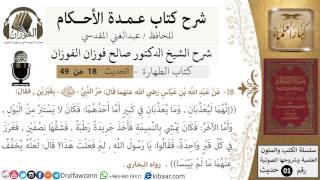 شرح كتاب عمدة الأحكام
للحافظ / عبدالغني المقدسي
شرح الشيخ الدكتور صالح فوزان الفوزان
كتاب الطهارة - الحديث 18 من 49
الفوزان
18- عَنْ عَبْدِ اللَّهِ بْنِ عَبَّاسٍ رضي الله عنهما قال: مَرَّ النَّبِيُّ - ﷺ - بِقَبْرَيْنِ، فَقَالَ:
((إنَّهُمَا لَيُعَذَّبَانِ، وَمَا يُعَذَّبَانِ فِي كَبِيرٍ أَمَّا أَحَدُهُمَا: فَكَانَ لا يَسْتَتِرُ مِنْ الْبَوْلِ،
وَأَمَّا الآخَرُ: فَكَانَ يَمْشِي بِالنَّمِيمَةِ فَأَخَذَ جَرِيدَةً رَطْبَةً، فَشَقَّهَا نِصْفَيْنِ، فَغَرَزَ
فِي كُلِّ قَبْرٍ وَاحِدَةً، فَقَالُوا: يَا رَسُولَ اللَّهِ، لِمَ فَعَلْتَ هَذَا؟ قَالَ: لَعَلَّهُ يُخَفَّفُ
عَنْهُمَا مَا لَمْ يَيْبَسَا)). رواه البخاري.
سلسلة
الكتب والمتون
العلمية وشروحها الصوتية
كتاب رقم 01 حديث
Dralfawzann
kibaar.com